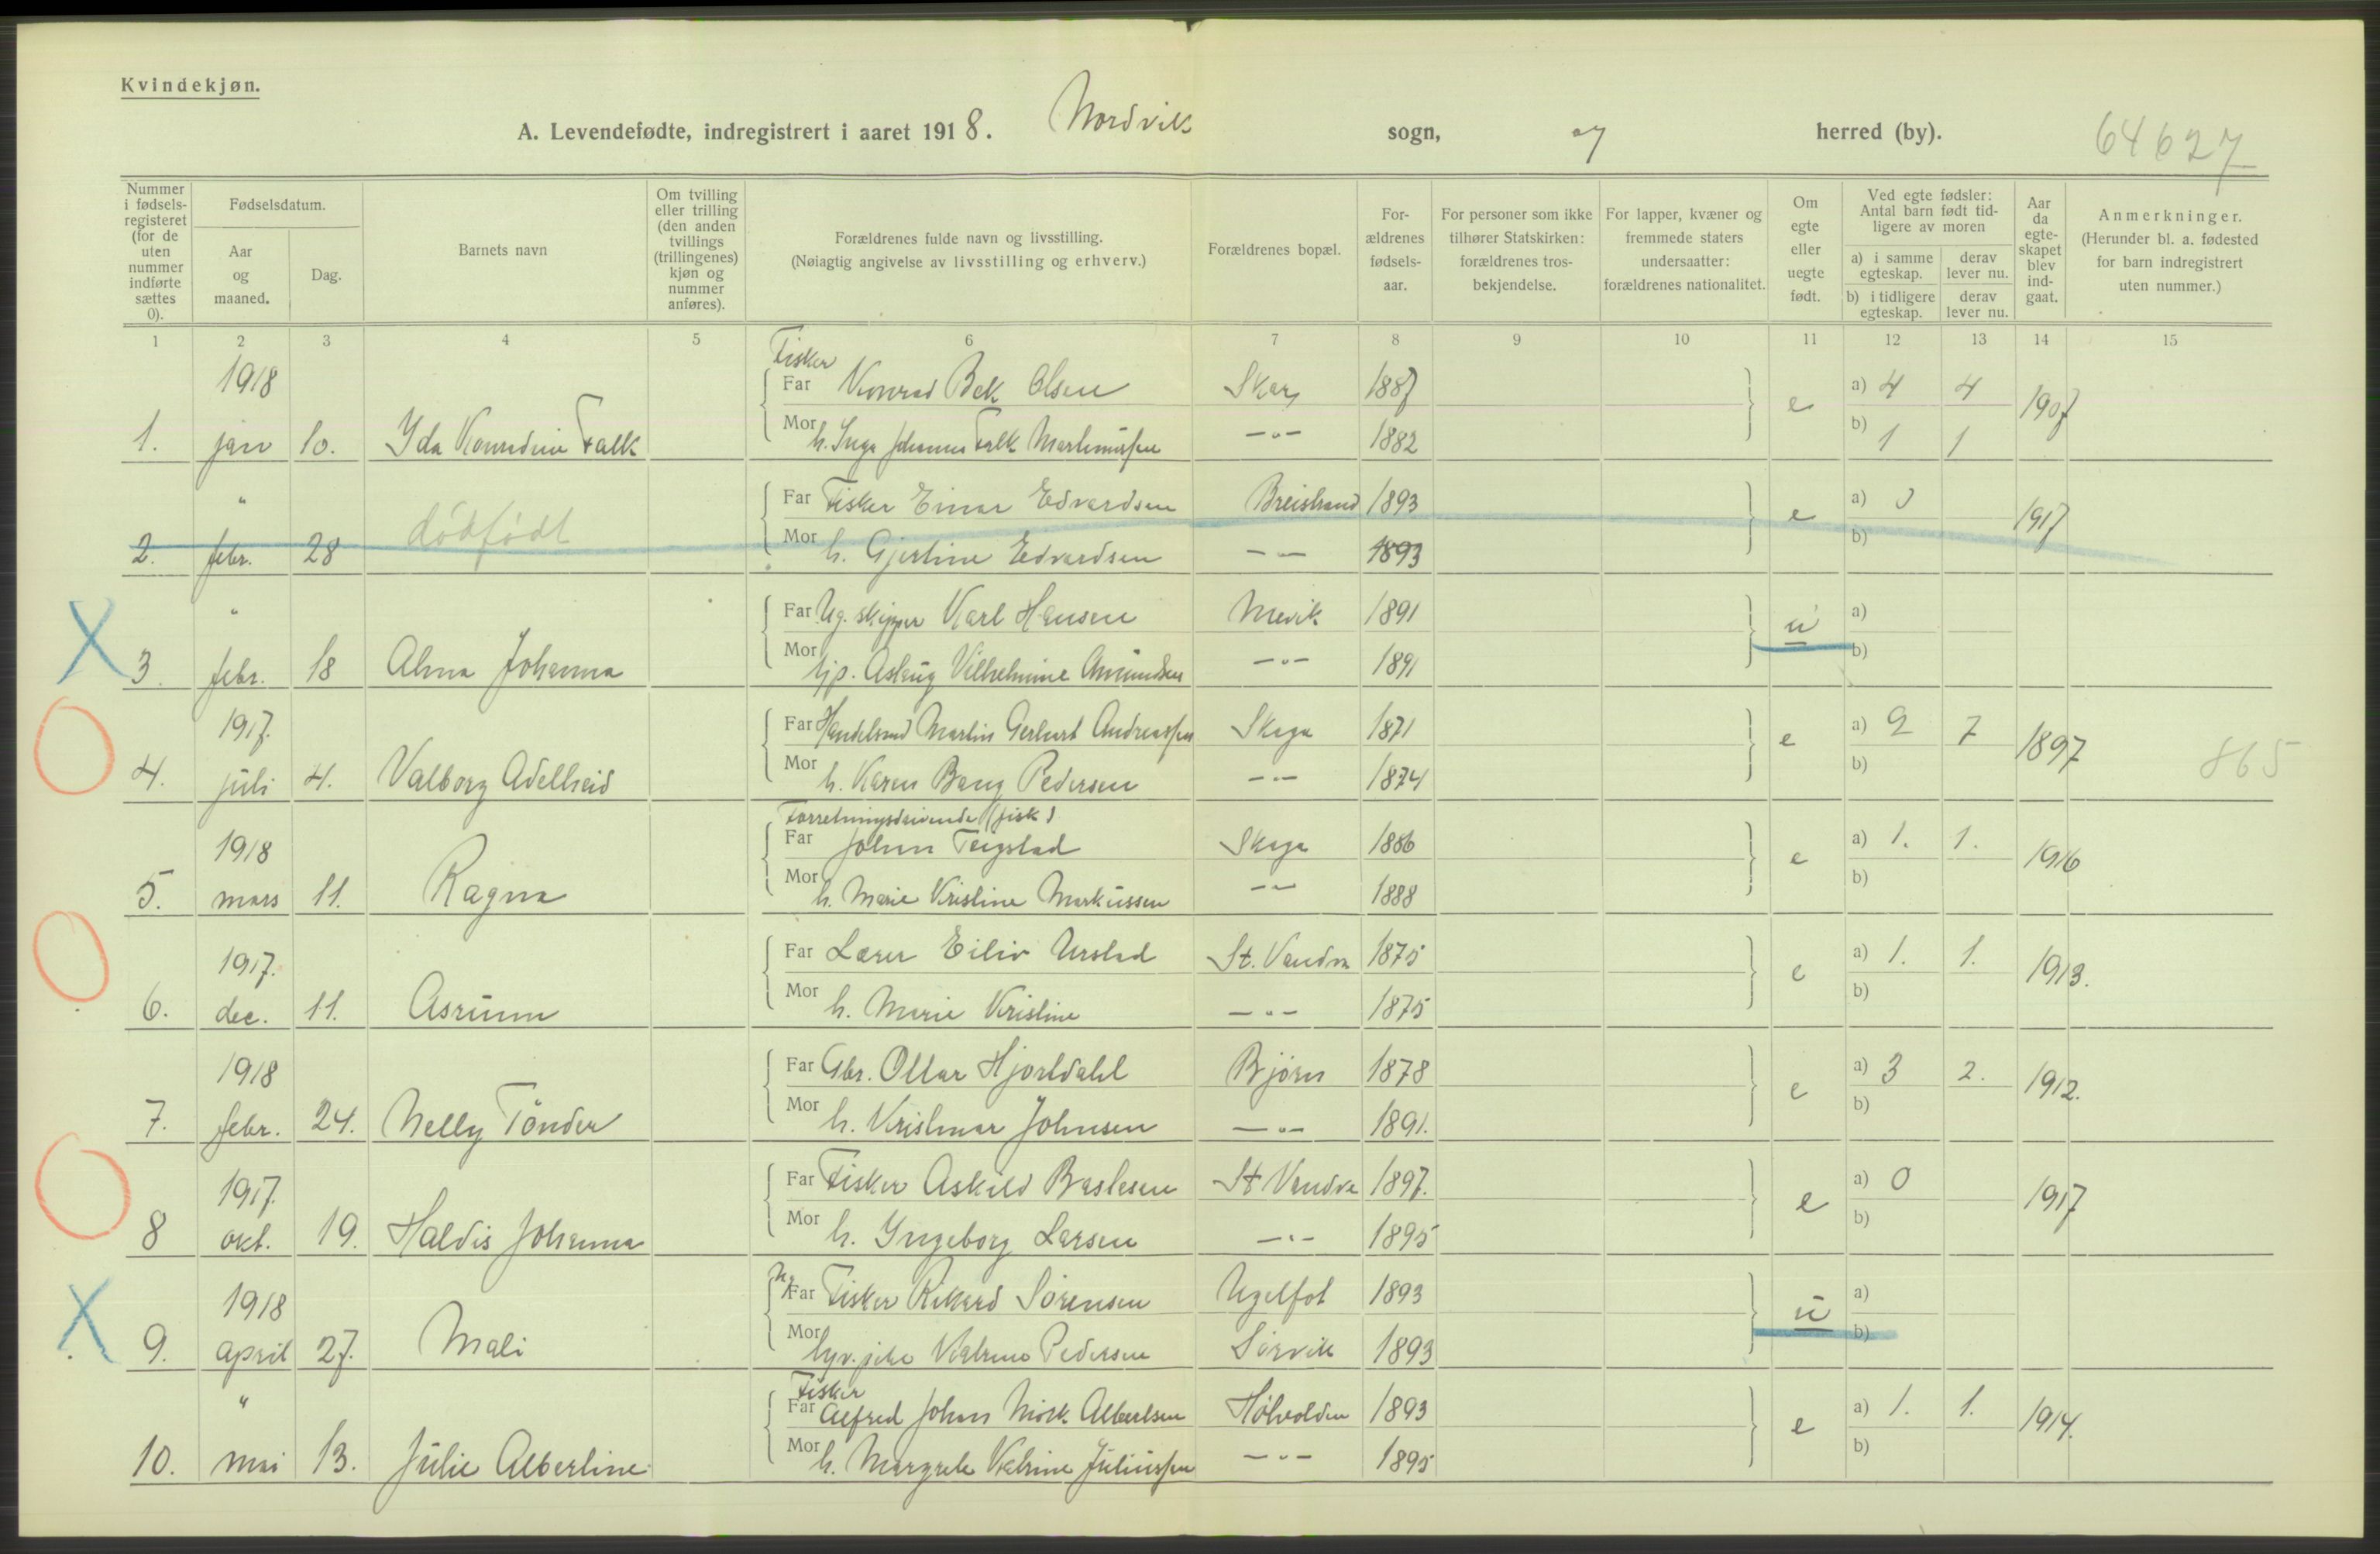 Kvindekjøn.
A. Levendefødte, indregistrert i aaret 1918. Nordvik sogn, og herred (by). 64627
Nummer i fødselsregisteret (for de uten nummer indførte sættes 0).
Fødselsdatum.
Aar og maaned.
Dag.
Barnets navn
Om tvilling eller trilling (den anden tvillings (trillingenes) kjøn og nummer anføres).
Forældrenes fulde navn og livsstilling.
(Nøiagtig angivelse av livsstilling og erhverv.)
Forældrenes bopæl.
Forældrenes fødselsaar.
For personer som ikke tilhører Statskirken: forældrenes trosbekjendelse.
For lapper, kvæner og fremmede staters undersaatter: forældrenes nationalitet.
Om egte eller uegte født.
Ved egte fødsler: Antal barn født tidligere av moren
a) i samme egteskap.
derav lever nu.
b) i tidligere egteskap.
derav lever nu.
Aar da egteskapet blev indgaat.
Anmerkninger.
(Herunder bl. a. fødested for barn indregistrert uten nummer.)
1 2 3 4 5 6 7 8 9 10 11 12 13 14 15
1918 Fisker
Far Konrad Bek Olsen Skar 1887 e a) 4 4 1907
1. jan 10. Ida Konradine Falk Mor h. Inga Johanna Falk Martinussen —"— 1882 b) 1 1
" Far Fisker Einar Edvardsen Breistrand 1893 e a) 0 1917
2. febr. 28 dødfødt Mor h. Gjertine Edvardsen —"— 1893 b)
" Far Ug. skipper Karl Hansen Mevik 1891 u a)
3. febr. 18 Alma Johanna Mor tjp. Aslaug Vilhelmine Amundsen —"— 1891 b)
1917. Far Handelsmd Martin Gerhart Andreassen Skaga 1871 e a) 9 7 1897
4. juli 4. Valborg Adelheid Mor h. Karen Bang Pedersen —"— 1874 b) 865
Forretningsdrivende (fisk)
1918 Far Johan Teigstad Skaga 1886 e a) 1. 1. 1916
5. mars 11. Ragna Mor h. Marie Kristine Markussen —"— 1888 b)
1917. Far Lærer Eiliv Urstad St. Vandva 1875 e a) 1. 1. 1913.
6. dec. 11. Asrunn Mor h. Marie Kristine —"— 1875 b)
1918 Far Gbr. Ottar Hjortdahl Bjørn 1878 e a) 3 2. 1912.
7. febr. 24. Nelly Tönder Mor h. Kristmar Johnsen —"— 1891. b)
1917. Far Fisker Askild Baslesen St Vandva 1897. e a) 0 1917
8 okt. 19. Haldis Johanna Mor h. Ingeborg Larsen —"— 1895 b)
1918 Ug. Far Fisker Rikard Sörensen Ugelfot 1893 u a)
9. april 27. Mali Mor Katrine Pedersen Sörvik 1893 b)
" Fisker
Far Alfred Johan Mörk Albertsen Hölvolden 1893 e a) 1. 1. 1914.
10. mai 13. Julie Albertine Mor h. Margrete Katrine Juliussen —"— 1895 b)